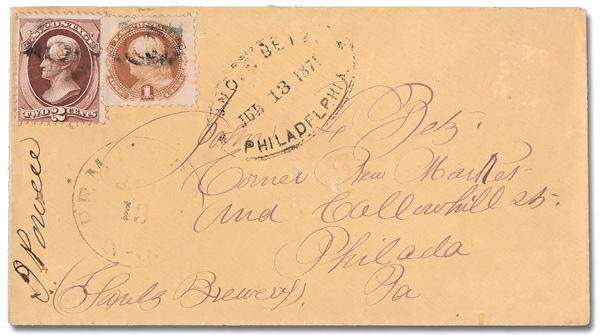 U.S. POSTAGE
TWO 2 CENTS
1
JUL 13 1871
PHILADELPHIA
John F. Betz.
Corner New Market
and Callowhill st.
Philada
Pa
(Gauls Brewery)
Powell